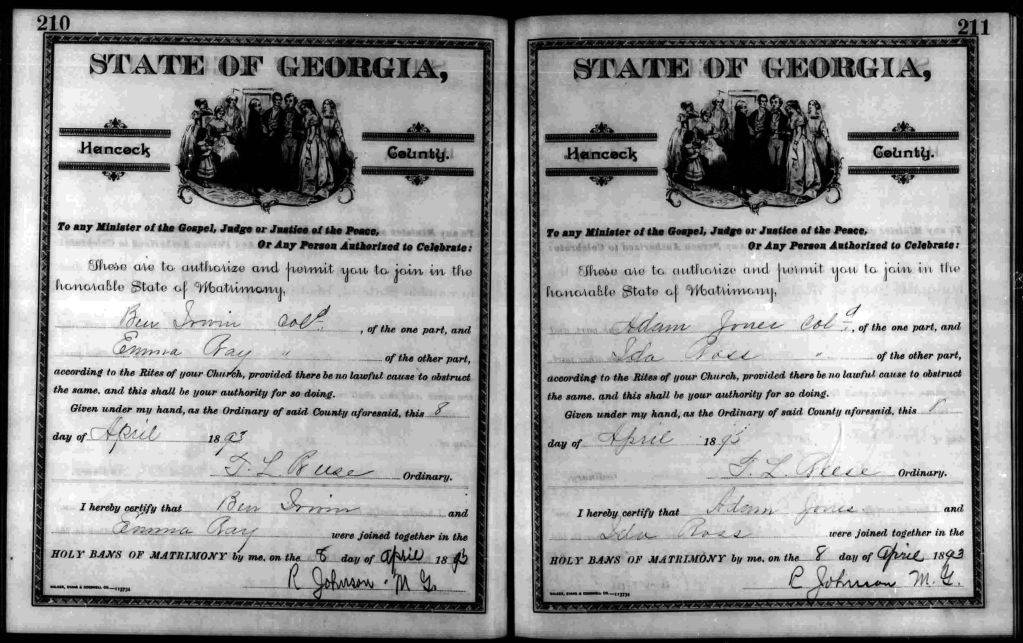 210
STATE OF GEORGIA,
Hancock County.
To any Minister of the Gospel, Judge or Justice of the Peace,
Or Any Person Authorized to Celebrate:
These are to authorize and permit you to join in the
honorable State of Matrimony,
Ben Irwin Cold. , of the one part, and
Emma Ray " of the other part,
according to the Rites of your Church, provided there be no lawful cause to obstruct
the same, and this shall be your authority for so doing.
Given under my hand, as the Ordinary of said County aforesaid, this 8
day of April 1893
T. L. Reese Ordinary.
I hereby certify that Ben Irwin and
Emma Ray were joined together in the
HOLY BANS OF MATRIMONY by me, on the 8 day of April 1893
R Johnson M G.
WALKER, EVANS & COGSWELL CO.—113734
211
STATE OF GEORGIA,
Hancock County.
To any Minister of the Gospel, Judge or Justice of the Peace,
Or Any Person Authorized to Celebrate:
These are to authorize and permit you to join in the
honorable State of Matrimony,
Adam Jones Cold , of the one part, and
Ida Ross " of the other part,
according to the Rites of your Church, provided there be no lawful cause to obstruct
the same, and this shall be your authority for so doing.
Given under my hand, as the Ordinary of said County aforesaid, this 8
day of April 1893
T. L. Reese Ordinary.
I hereby certify that Adam Jones and
Ida Ross were joined together in the
HOLY BANS OF MATRIMONY by me, on the 8 day of April 1893
R Johnson M. G.
WALKER, EVANS & COGSWELL CO.—113734